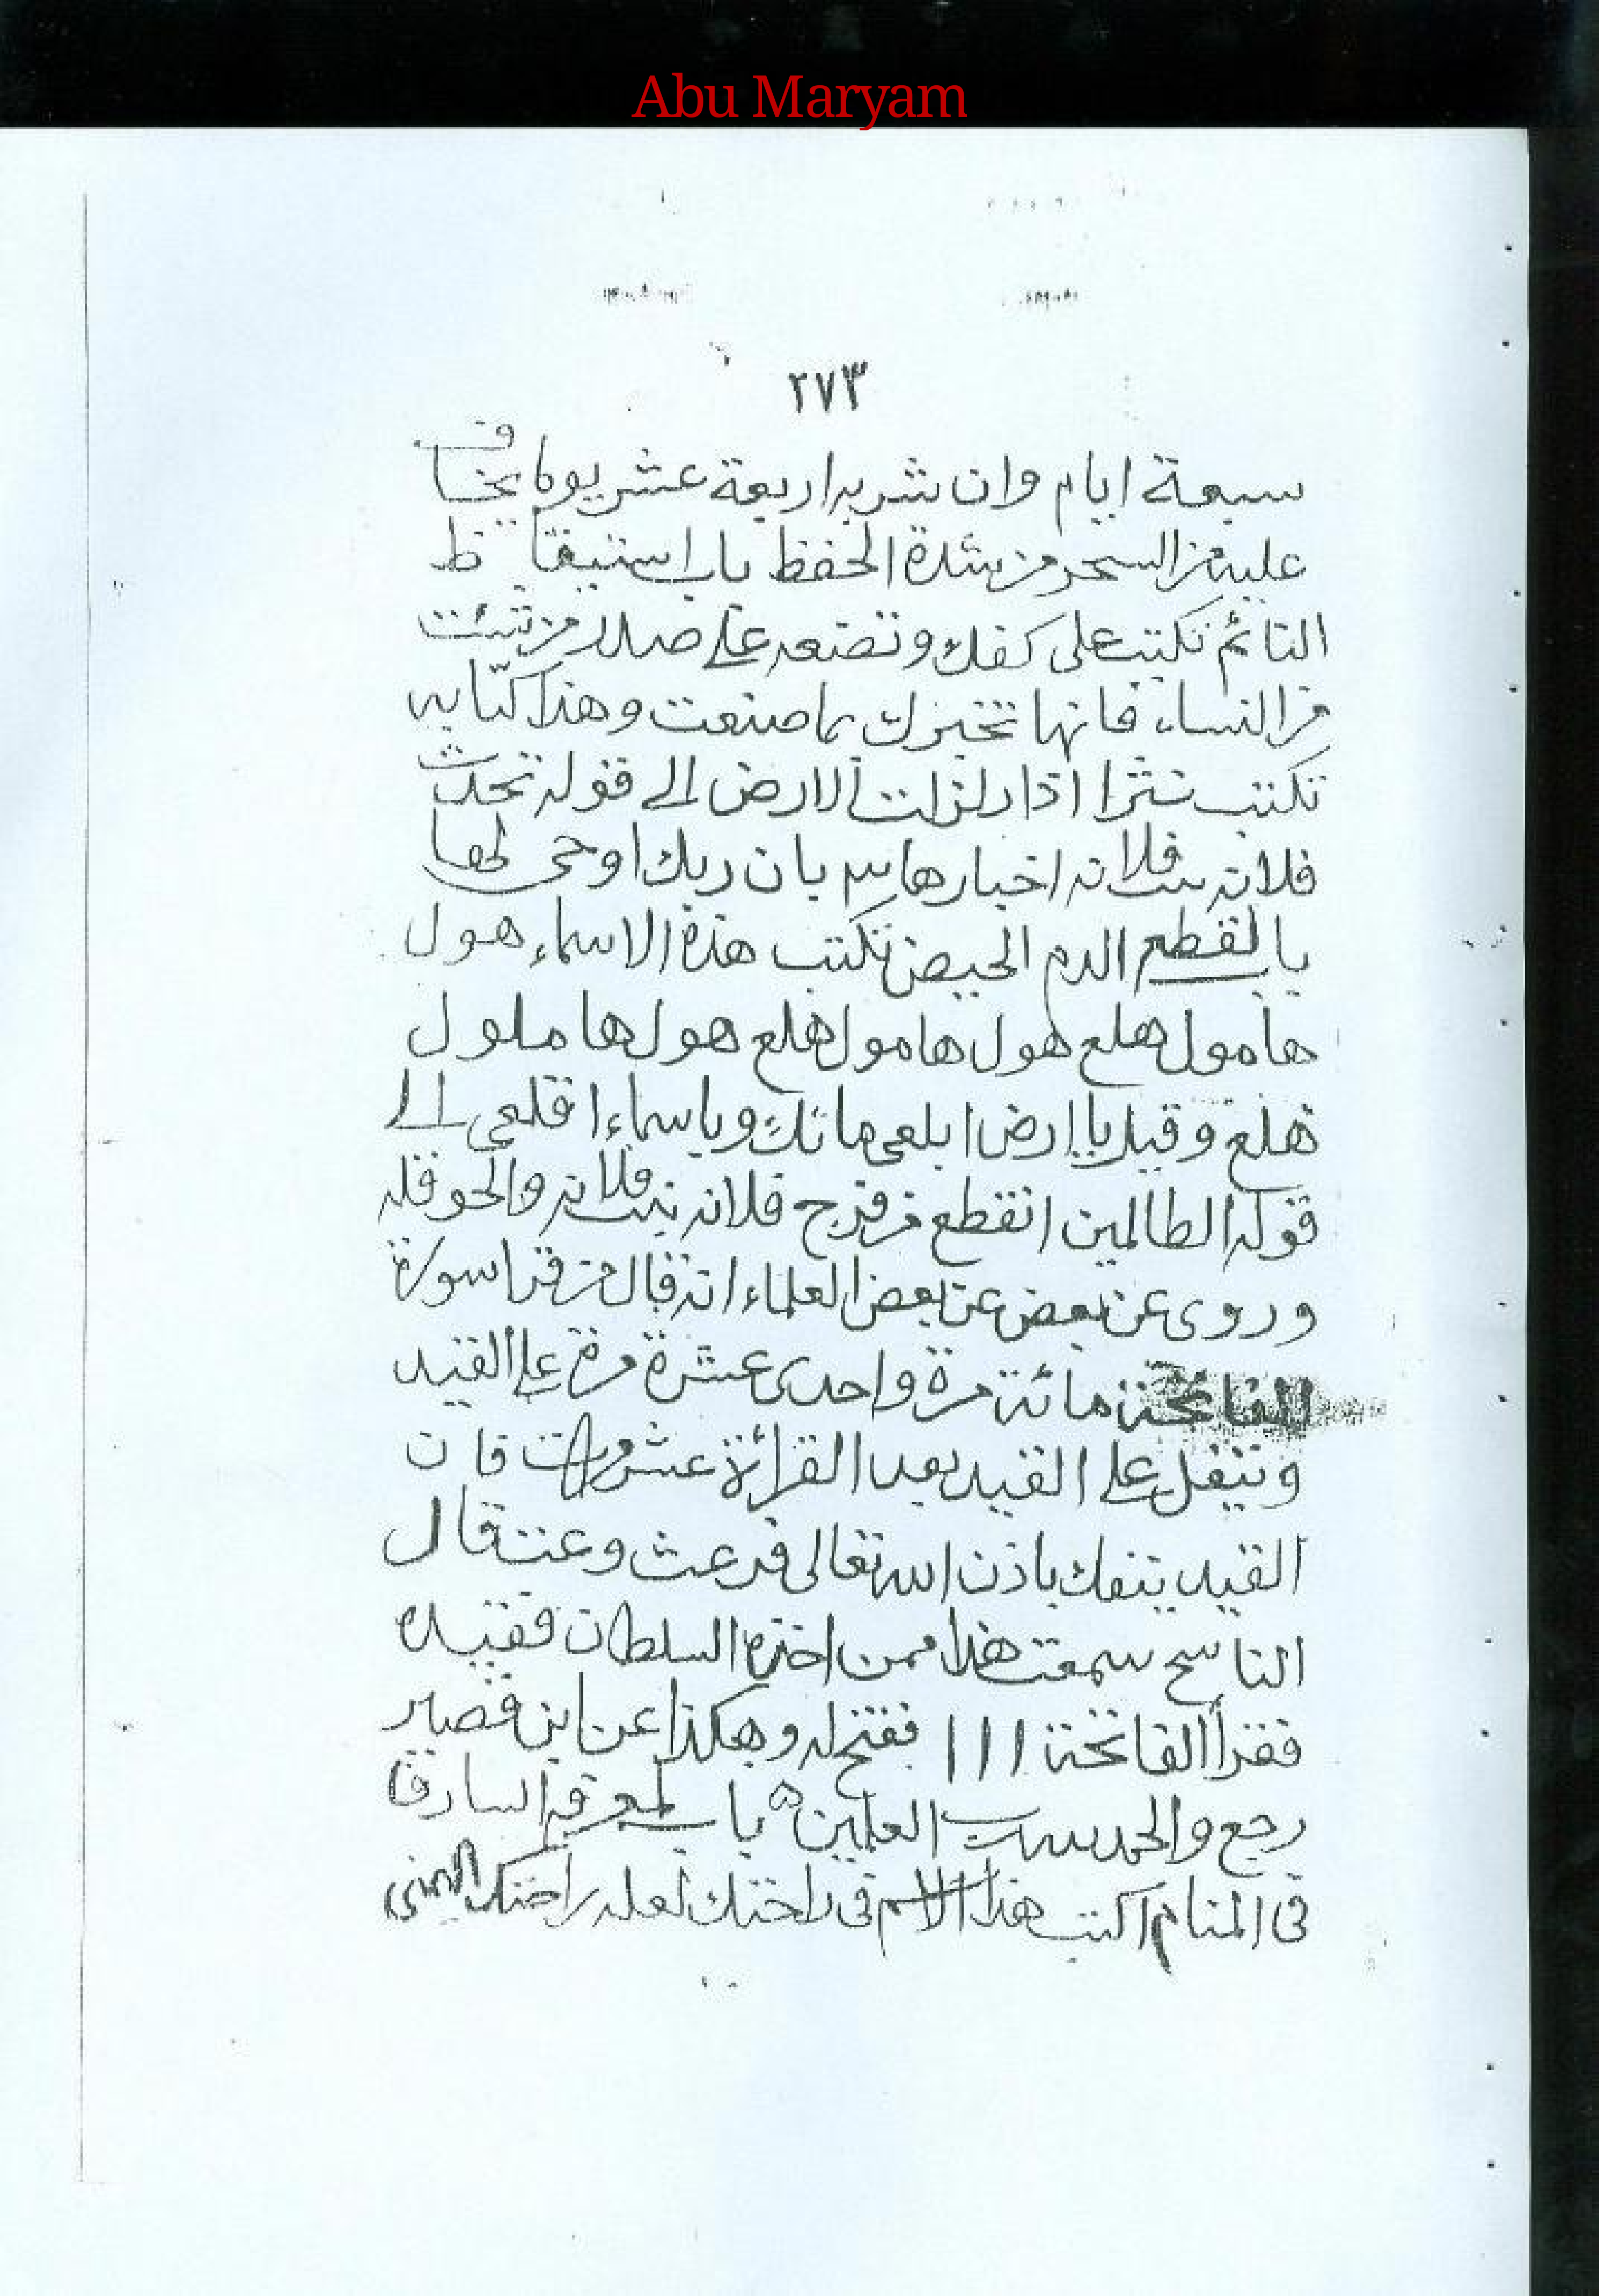 Abu Maryam
٢٧٣
سبعة ايام وان شربه اربعة عشر يوما يخاف
عليه من السحر من شدة الحفظ باب استيقاظ
النائم تكتب على كفك وتضعه على صدر من شئت
من النساء فانها تخبرك بما صنعت وهذا كتابه
تكتب نثرا اذا زلزلت الارض الى قوله تحدث
فلانه بنت فلانه اخبارها بان ربك اوحى لها
باب لقطع الدم الحيض تكتب هذه الاسماء هول
هامول هلع هول هامول هلع هول ها ملول
هلع وقيل يا ارض ابلعى مائك ويا سماء اقلعى الى
قوله الظالمين انقطع من فرج فلانه بنت فلانه والحوقله
وروى عن بعض عن بعض العلماء انه قال من قرا سورة
الفاتحة مائة مرة واحدى عشرة مرة على القيد
وتتفل على القيد بعد القرائة عشر مرات فان
القيد ينفك باذن الله تعالى وعنه قال
الناسخ سمعت هذا ممن اخذه السلطان فقيده
فقرأ الفاتحة ١١١ ففتح له وهكذا عن ابن قصير
رجع والحمد لله رب العلمين باب لمعرفة السارق
فى المنام اكتب هذا الاسم فى راحتك لعله راحتك اليمنى